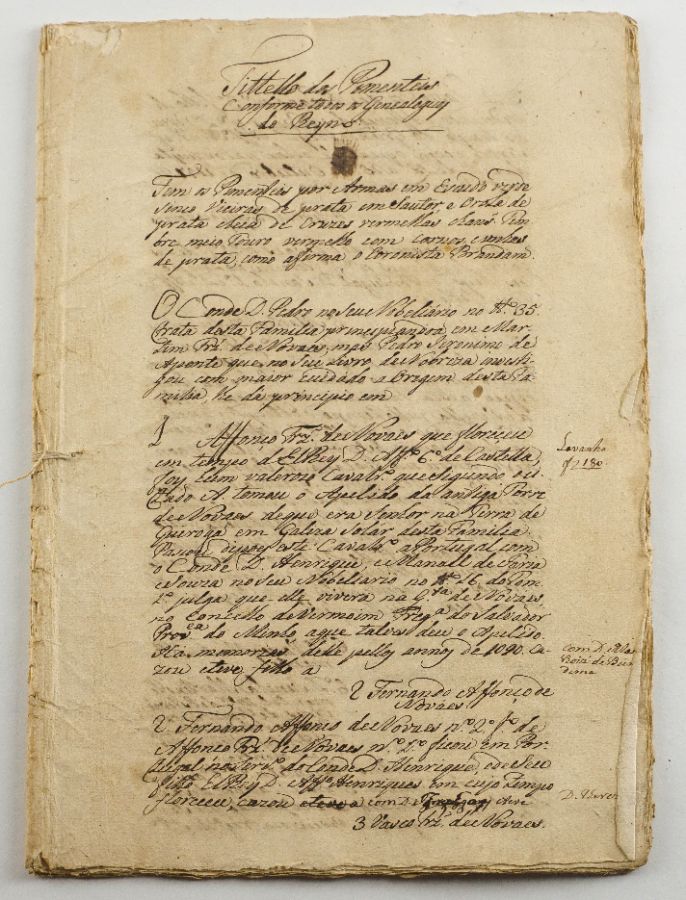 Tittello dos Pimenteis
Conforme todos os Genealogicos
do Reyno.
Tem os Pimenteis por Armas em Escudo verde
sinco Vieiras de prata em Sautor, e Orla de
prata cheia de Cruzes vermelhas
meio Touro vermelho com cornos, e unhas
de prata, como afirma o Coronista Brandam.
O Conde D. Pedro no seu Nobeliario no tt.º 35
trata desta Familia principiandoa em Mar-
tim Frz. de Novaes, mas Pedro Jeronimo de
Aponte que no seu Livro de Nobreza investi-
gou com maior cuidado a Origem desta Fa-
milia, lhe da principio em
1 Affonço Frz. de Novaes que floreceu
em tempo d'ElRey D. Aff.º 6.º de Castella,
foy hum valerozo Cavalr.º que segundo o ci-
tado A. tomou o Apelido da antiga Torre
de Novaes de que era Senhor na Terra de
Quiroga em Galiza Solar desta Familia.
Passou depois este Cavalr.º a Portugal com
o Conde D. Henrique, e Manoel de Faria
e Souza no seu Nobeliario no tt.º 16. do
julga que elle viveria na q.ta de Novaes
no Concelho de Vermoim Freg.ª do Salvador
Prov.ca do Minho, a que talves deu o Apelido.
Há memorias delle pellos annos de 1090. Ca-
zou e teve filho a
2 Fernando Affonço de
Novaes.
2 Fernando Affonço de Novaes n.º 2.º f.º de
Affonço Frz. de Novaes n.º 1.º ficou em Por-
tugal no serv.º do Conde D. Henrique, e de seu
filho ElRey D. Aff.º Henriques em cujo tempo
floreceu, cazou com D.
3 Vasco Frz. de Novaes.
Lavanha
f 2 180
com D.
D.